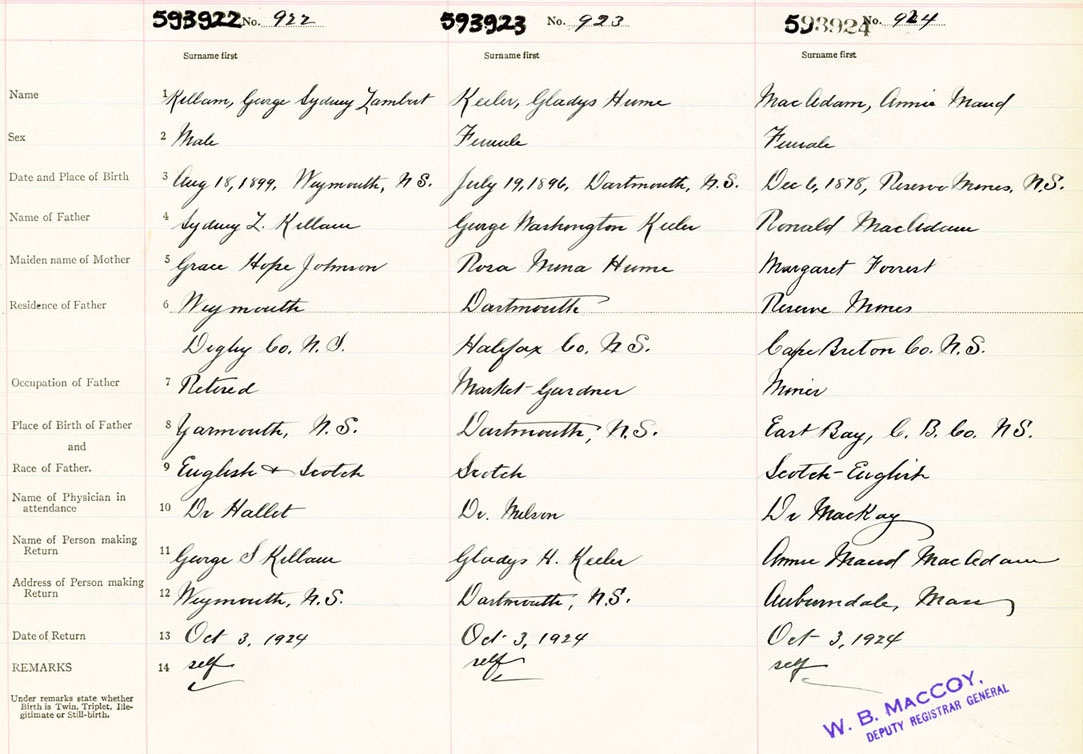 593922 No. 922 593923 No. 923 593924 No. 924
Surname first Surname first Surname first
Name 1 Killam, George Sydney Lambert Keeler, Gladys Hume MacAdam, Annie Maud
Sex 2 Male Female Female
Date and Place of Birth 3 Aug 18, 1899, Weymouth, N.S. July 19, 1896, Dartmouth, N.S. Dec 6, 1878, Reserve Mines, N.S.
Name of Father 4 Sydney L. Killam George Washington Keeler Ronald MacAdam
Maiden name of Mother 5 Grace Hope Johnson Rosa Mina Hume Margaret Forrest
Residence of Father 6 Weymouth Dartmouth Reserve Mines
Digby Co. N.S. Halifax Co. N.S. Cape Breton Co. N.S.
Occupation of Father 7 Retired Market-Gardner Miner
Place of Birth of Father 8 Yarmouth, N.S. Dartmouth, N.S. East Bay, C. B. Co. N.S.
and
Race of Father. 9 English & Scotch Scotch Scotch-English
Name of Physician in
attendance 10 Dr Hallet Dr. Milson Dr MacKay
Name of Person making
Return 11 George S Killam Gladys H. Keeler Annie Maud MacAdam
Address of Person making
Return 12 Weymouth, N.S. Dartmouth, N.S. Auburndale, Mass
Date of Return 13 Oct 3, 1924 Oct 3, 1924 Oct 3, 1924
REMARKS 14 self self self
Under remarks state whether
Birth is Twin, Triplet, Ille-
gitimate or Still-birth.
W. B. MACCOY,
DEPUTY REGISTRAR GENERAL